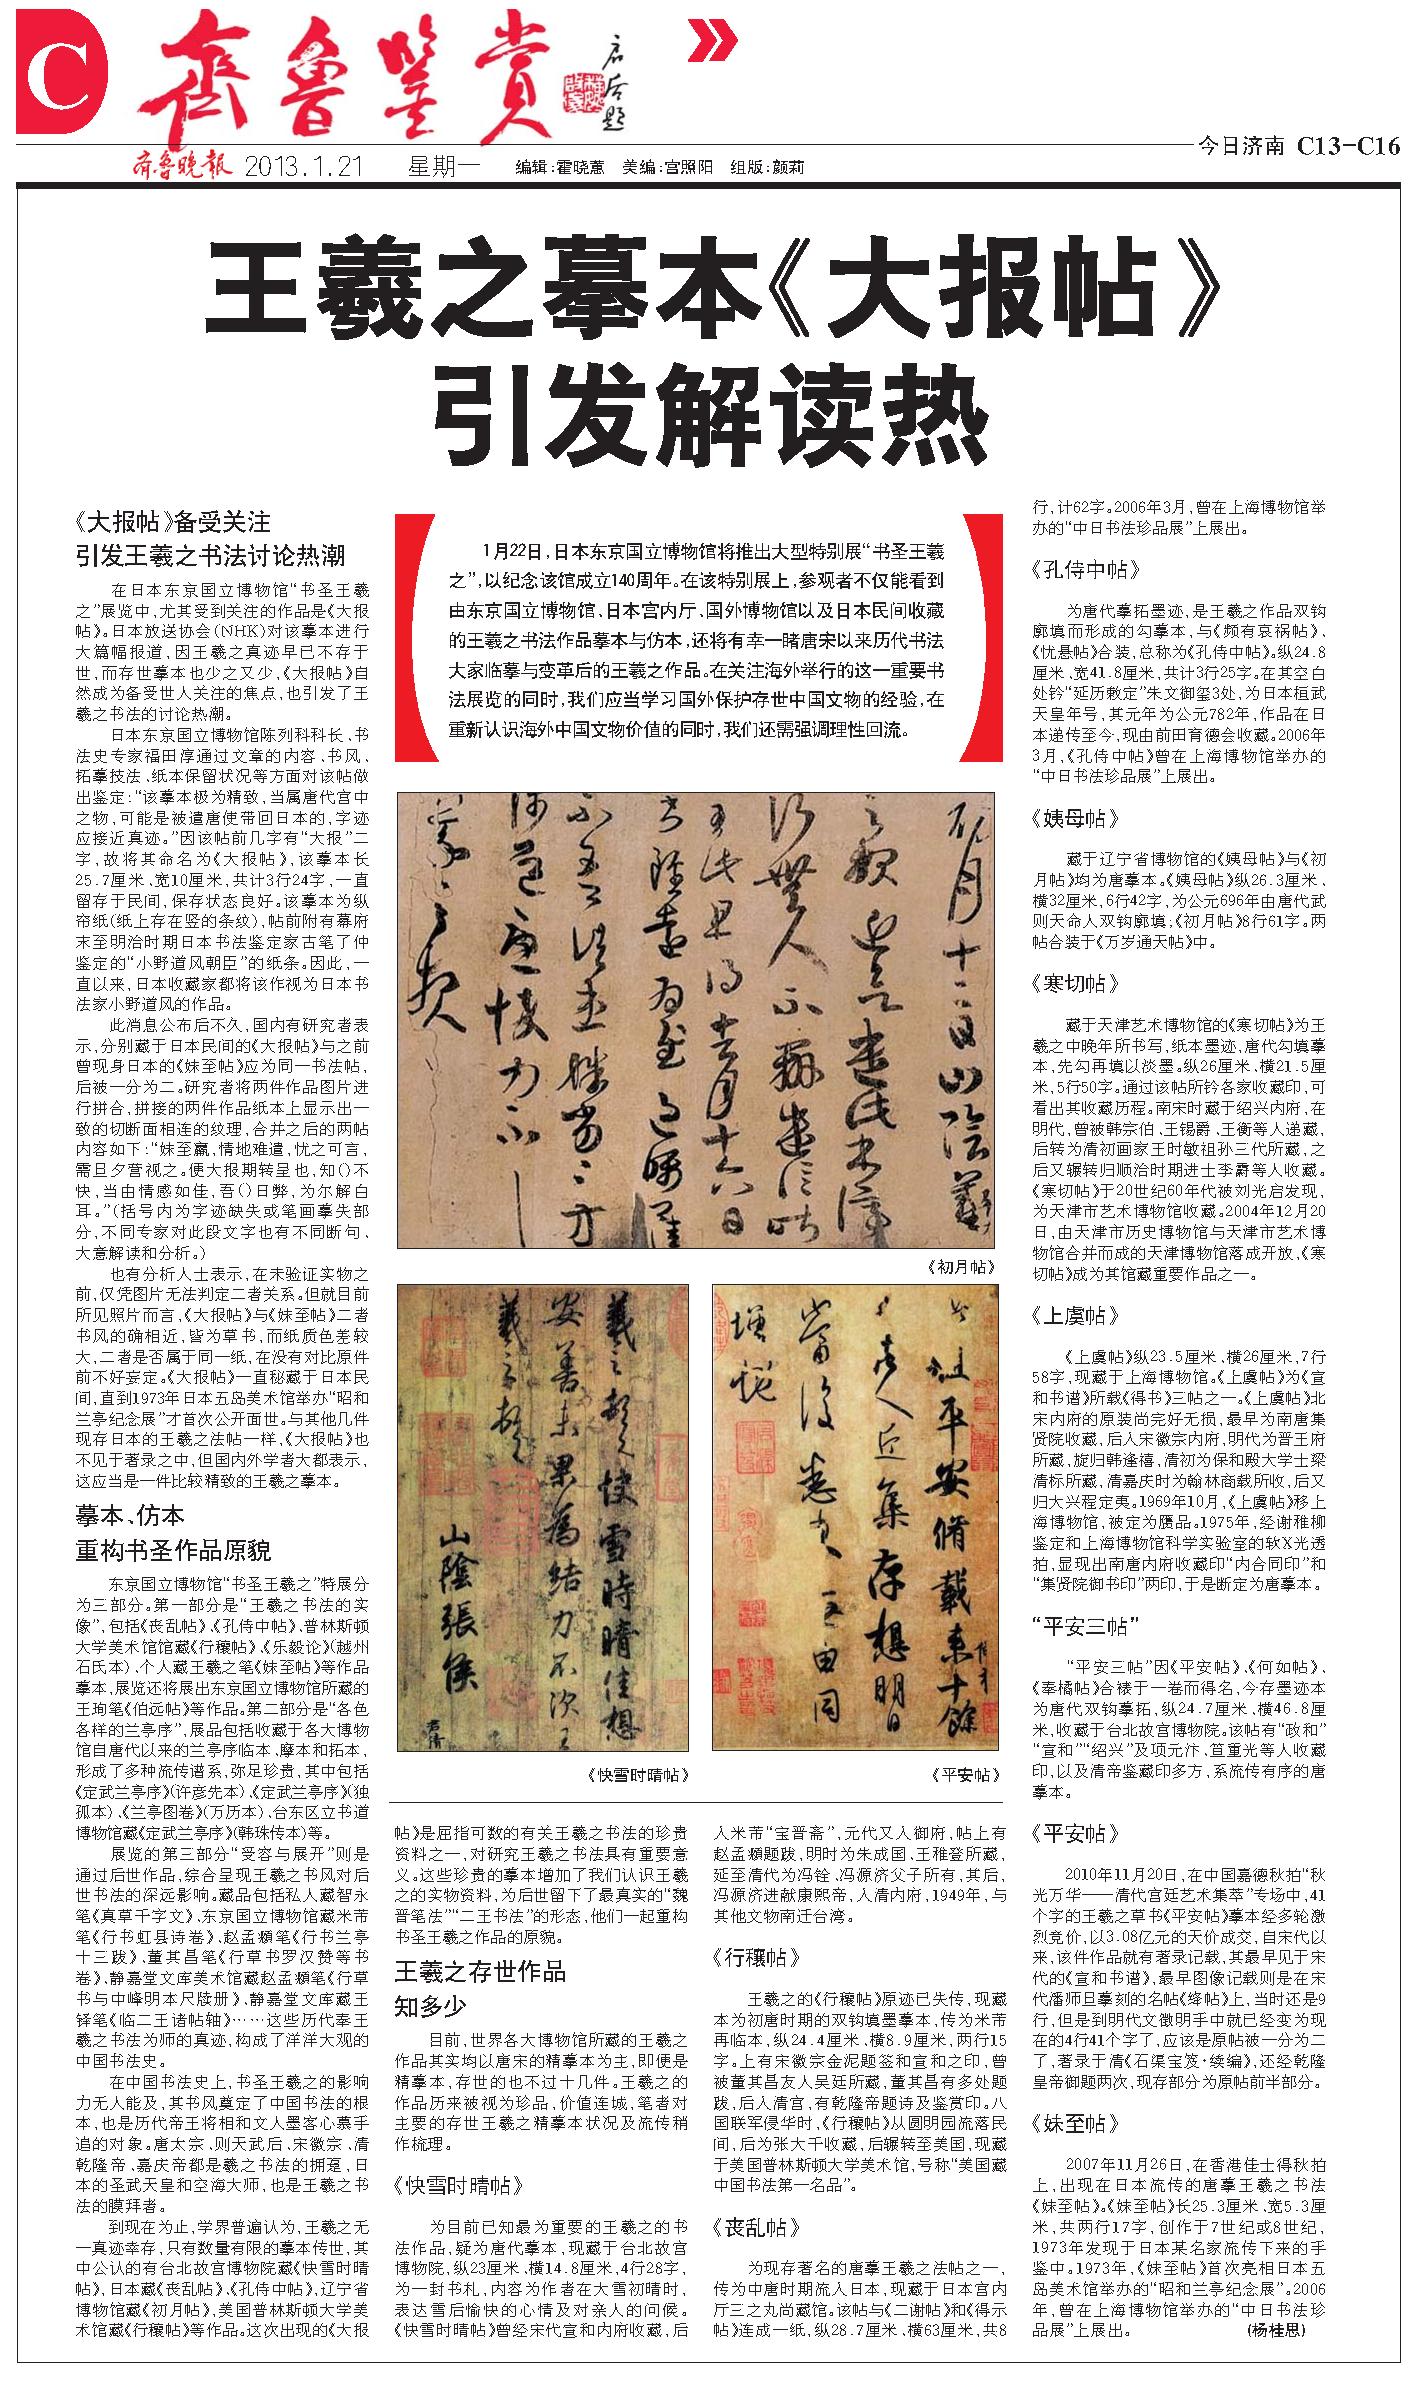 C
齊魯鉴赏
启后题
今日济南 C13-C16
齐鲁晚报 2013.1.21 星期一 编辑:霍晓蕙 美编:宫照阳 组版:颜莉
王羲之摹本《大报帖》
引发解读热
《大报帖》备受关注
引发王羲之书法讨论热潮
在日本东京国立博物馆“书圣王羲
之”展览中,尤其受到关注的作品是《大报
帖》。日本放送协会(NHK)对该摹本进行
大篇幅报道,因王羲之真迹早已不存于
世,而存世摹本也少之又少,《大报帖》自
然成为备受世人关注的焦点,也引发了王
羲之书法的讨论热潮。
日本东京国立博物馆陈列科科长、书
法史专家福田淳通过文章的内容、书风、
拓摹技法、纸本保留状况等方面对该帖做
出鉴定:“该摹本极为精致,当属唐代宫中
之物,可能是被遣唐使带回日本的,字迹
应接近真迹。”因该帖前几字有“大报”二
字,故将其命名为《大报帖》,该摹本长
25.7厘米、宽10厘米,共计3行24字,一直
留存于民间,保存状态良好。该摹本为纵
帘纸(纸上存在竖的条纹),帖前附有幕府
末至明治时期日本书法鉴定家古笔了仲
鉴定的“小野道风朝臣”的纸条。因此,一
直以来,日本收藏家都将该作视为日本书
法家小野道风的作品。
此消息公布后不久,国内有研究者表
示,分别藏于日本民间的《大报帖》与之前
曾现身日本的《妹至帖》应为同一书法帖,
后被一分为二。研究者将两件作品图片进
行拼合,拼接的两件作品纸本上显示出一
致的切断面相连的纹理,合并之后的两帖
内容如下:“妹至羸,情地难遣,忧之可言,
需旦夕营视之。便大报期转呈也,知()不
快,当由情感如佳,吾()日弊,为尔解白
耳。”(括号内为字迹缺失或笔画摹失部
分,不同专家对此段文字也有不同断句、
大意解读和分析。)
也有分析人士表示,在未验证实物之
前,仅凭图片无法判定二者关系。但就目前
所见照片而言,《大报帖》与《妹至帖》二者
书风的确相近,皆为草书,而纸质色差较
大,二者是否属于同一纸,在没有对比原件
前不好妄定。《大报帖》一直秘藏于日本民
间,直到1973年日本五岛美术馆举办“昭和
兰亭纪念展”才首次公开面世。与其他几件
现存日本的王羲之法帖一样,《大报帖》也
不见于著录之中,但国内外学者大都表示,
这应当是一件比较精致的王羲之摹本。
摹本、仿本
重构书圣作品原貌
东京国立博物馆“书圣王羲之”特展分
为三部分。第一部分是“王羲之书法的实
像”,包括《丧乱帖》、《孔侍中帖》、普林斯顿
大学美术馆馆藏《行穰帖》、《乐毅论》(越州
石氏本)、个人藏王羲之笔《妹至帖》等作品
摹本,展览还将展出东京国立博物馆所藏的
王珣笔《伯远帖》等作品。第二部分是“各色
各样的兰亭序”,展品包括收藏于各大博物
馆自唐代以来的兰亭序临本、摩本和拓本,
形成了多种流传谱系,弥足珍贵,其中包括
《定武兰亭序》(许彦先本)、《定武兰亭序》(独
孤本)、《兰亭图卷》(万历本)、台东区立书道
博物馆藏《定武兰亭序》(韩珠传本)等。
展览的第三部分“受容与展开”则是
通过后世作品,综合呈现王羲之书风对后
世书法的深远影响。藏品包括私人藏智永
笔《真草千字文》、东京国立博物馆藏米芾
笔《行书虹县诗卷》、赵孟頫笔《行书兰亭
十三跋》、董其昌笔《行草书罗汉赞等书
卷》、静嘉堂文库美术馆藏赵孟頫笔《行草
书与中峰明本尺牍册》、静嘉堂文库藏王
铎笔《临二王诸帖轴》……这些历代奉王
羲之书法为师的真迹,构成了洋洋大观的
中国书法史。
在中国书法史上,书圣王羲之的影响
力无人能及,其书风奠定了中国书法的根
本,也是历代帝王将相和文人墨客心慕手
追的对象。唐太宗、则天武后、宋徽宗、清
乾隆帝、嘉庆帝都是羲之书法的拥趸,日
本的圣武天皇和空海大师,也是王羲之书
法的膜拜者。
到现在为止,学界普遍认为,王羲之无
一真迹幸存,只有数量有限的摹本传世,其
中公认的有台北故宫博物院藏《快雪时晴
帖》,日本藏《丧乱帖》、《孔侍中帖》,辽宁省
博物馆藏《初月帖》,美国普林斯顿大学美
术馆藏《行穰帖》等作品。这次出现的《大报
1月22日,日本东京国立博物馆将推出大型特别展“书圣王羲
之”,以纪念该馆成立140周年。在该特别展上,参观者不仅能看到
由东京国立博物馆、日本宫内厅、国外博物馆以及日本民间收藏
的王羲之书法作品摹本与仿本,还将有幸一睹唐宋以来历代书法
大家临摹与变革后的王羲之作品。在关注海外举行的这一重要书
法展览的同时,我们应当学习国外保护存世中国文物的经验,在
重新认识海外中国文物价值的同时,我们还需强调理性回流。
初月十二日山陰羲
《初月帖》
羲之頓首快雪時晴佳想
安善未果為結力不次王
羲之頓首
山陰張侯
君倩
《快雪时晴帖》
此粗平安脩載來十餘
諸人近集存想明日
當復悉來無由同
增慨
《平安帖》
帖》是屈指可数的有关王羲之书法的珍贵
资料之一,对研究王羲之书法具有重要意
义。这些珍贵的摹本增加了我们认识王羲
之的实物资料,为后世留下了最真实的“魏
晋笔法”“二王书法”的形态,他们一起重构
书圣王羲之作品的原貌。
王羲之存世作品
知多少
目前,世界各大博物馆所藏的王羲之
作品其实均以唐宋的精摹本为主,即便是
精摹本,存世的也不过十几件。王羲之的
作品历来被视为珍品,价值连城,笔者对
主要的存世王羲之精摹本状况及流传稍
作梳理。
《快雪时晴帖》
为目前已知最为重要的王羲之的书
法作品,疑为唐代摹本,现藏于台北故宫
博物院,纵23厘米、横14.8厘米,4行28字,
为一封书札,内容为作者在大雪初晴时,
表达雪后愉快的心情及对亲人的问候。
《快雪时晴帖》曾经宋代宣和内府收藏,后
入米芾“宝晋斋”,元代又入御府,帖上有
赵孟頫题跋,明时为朱成国、王稚登所藏,
延至清代为冯铨、冯源济父子所有,其后,
冯源济进献康熙帝,入清内府,1949年,与
其他文物南迁台湾。
《行穰帖》
王羲之的《行穰帖》原迹已失传,现藏
本为初唐时期的双钩填墨摹本,传为米芾
再临本,纵24.4厘米、横8.9厘米,两行15
字。上有宋徽宗金泥题签和宣和之印,曾
被董其昌友人吴廷所藏,董其昌有多处题
跋,后入清宫,有乾隆帝题诗及鉴赏印。八
国联军侵华时,《行穰帖》从圆明园流落民
间,后为张大千收藏,后辗转至美国,现藏
于美国普林斯顿大学美术馆,号称“美国藏
中国书法第一名品”。
《丧乱帖》
为现存著名的唐摹王羲之法帖之一,
传为中唐时期流入日本,现藏于日本宫内
厅三之丸尚藏馆。该帖与《二谢帖》和《得示
帖》连成一纸,纵28.7厘米、横63厘米,共8
行,计62字。2006年3月,曾在上海博物馆举
办的“中日书法珍品展”上展出。
《孔侍中帖》
为唐代摹拓墨迹,是王羲之作品双钩
廓填而形成的勾摹本,与《频有哀祸帖》、
《忧悬帖》合装,总称为《孔侍中帖》。纵24.8
厘米、宽41.8厘米,共计3行25字。在其空白
处钤“延历敕定”朱文御玺3处,为日本桓武
天皇年号,其元年为公元782年,作品在日
本递传至今,现由前田育德会收藏。2006年
3月,《孔侍中帖》曾在上海博物馆举办的
“中日书法珍品展”上展出。
《姨母帖》
藏于辽宁省博物馆的《姨母帖》与《初
月帖》均为唐摹本。《姨母帖》纵26.3厘米、
横32厘米,6行42字,为公元696年由唐代武
则天命人双钩廓填;《初月帖》8行61字。两
帖合装于《万岁通天帖》中。
《寒切帖》
藏于天津艺术博物馆的《寒切帖》为王
羲之中晚年所书写,纸本墨迹,唐代勾填摹
本,先勾再填以淡墨。纵26厘米、横21.5厘
米,5行50字。通过该帖所钤各家收藏印,可
看出其收藏历程。南宋时藏于绍兴内府,在
明代,曾被韩宗伯、王锡爵、王衡等人递藏,
后转为清初画家王时敏祖孙三代所藏,之
后又辗转归顺治时期进士李霨等人收藏。
《寒切帖》于20世纪60年代被刘光启发现,
为天津市艺术博物馆收藏。2004年12月20
日,由天津市历史博物馆与天津市艺术博
物馆合并而成的天津博物馆落成开放,《寒
切帖》成为其馆藏重要作品之一。
《上虞帖》
《上虞帖》纵23.5厘米、横26厘米,7行
58字,现藏于上海博物馆。《上虞帖》为《宣
和书谱》所载《得书》三帖之一。《上虞帖》北
宋内府的原装尚完好无损,最早为南唐集
贤院收藏,后入宋徽宗内府,明代为晋王府
所藏,旋归韩逢禧,清初为保和殿大学士梁
清标所藏,清嘉庆时为翰林商载所收,后又
归大兴程定夷。1969年10月,《上虞帖》移上
海博物馆,被定为赝品。1975年,经谢稚柳
鉴定和上海博物馆科学实验室的软X光透
拍,显现出南唐内府收藏印“内合同印”和
“集贤院御书印”两印,于是断定为唐摹本。
“平安三帖”
“平安三帖”因《平安帖》、《何如帖》、
《奉橘帖》合裱于一卷而得名,今存墨迹本
为唐代双钩摹拓,纵24.7厘米、横46.8厘
米,收藏于台北故宫博物院。该帖有“政和”
“宣和”“绍兴”及项元汴、笪重光等人收藏
印,以及清帝鉴藏印多方,系流传有序的唐
摹本。
《平安帖》
2010年11月20日,在中国嘉德秋拍“秋
光万华——清代宫廷艺术集萃”专场中,41
个字的王羲之草书《平安帖》摹本经多轮激
烈竞价,以3.08亿元的天价成交,自宋代以
来,该件作品就有著录记载,其最早见于宋
代的《宣和书谱》,最早图像记载则是在宋
代潘师旦摹刻的名帖《绛帖》上,当时还是9
行,但是到明代文徵明手中就已经变为现
在的4行41个字了,应该是原帖被一分为二
了,著录于清《石渠宝笈·续编》,还经乾隆
皇帝御题两次,现存部分为原帖前半部分。
《妹至帖》
2007年11月26日,在香港佳士得秋拍
上,出现在日本流传的唐摹王羲之书法
《妹至帖》。《妹至帖》长25.3厘米、宽5.3厘
米,共两行17字,创作于7世纪或8世纪,
1973年发现于日本某名家流传下来的手
鉴中。1973年,《妹至帖》首次亮相日本五
岛美术馆举办的“昭和兰亭纪念展”。2006
年,曾在上海博物馆举办的“中日书法珍
品展”上展出。 (杨桂思)